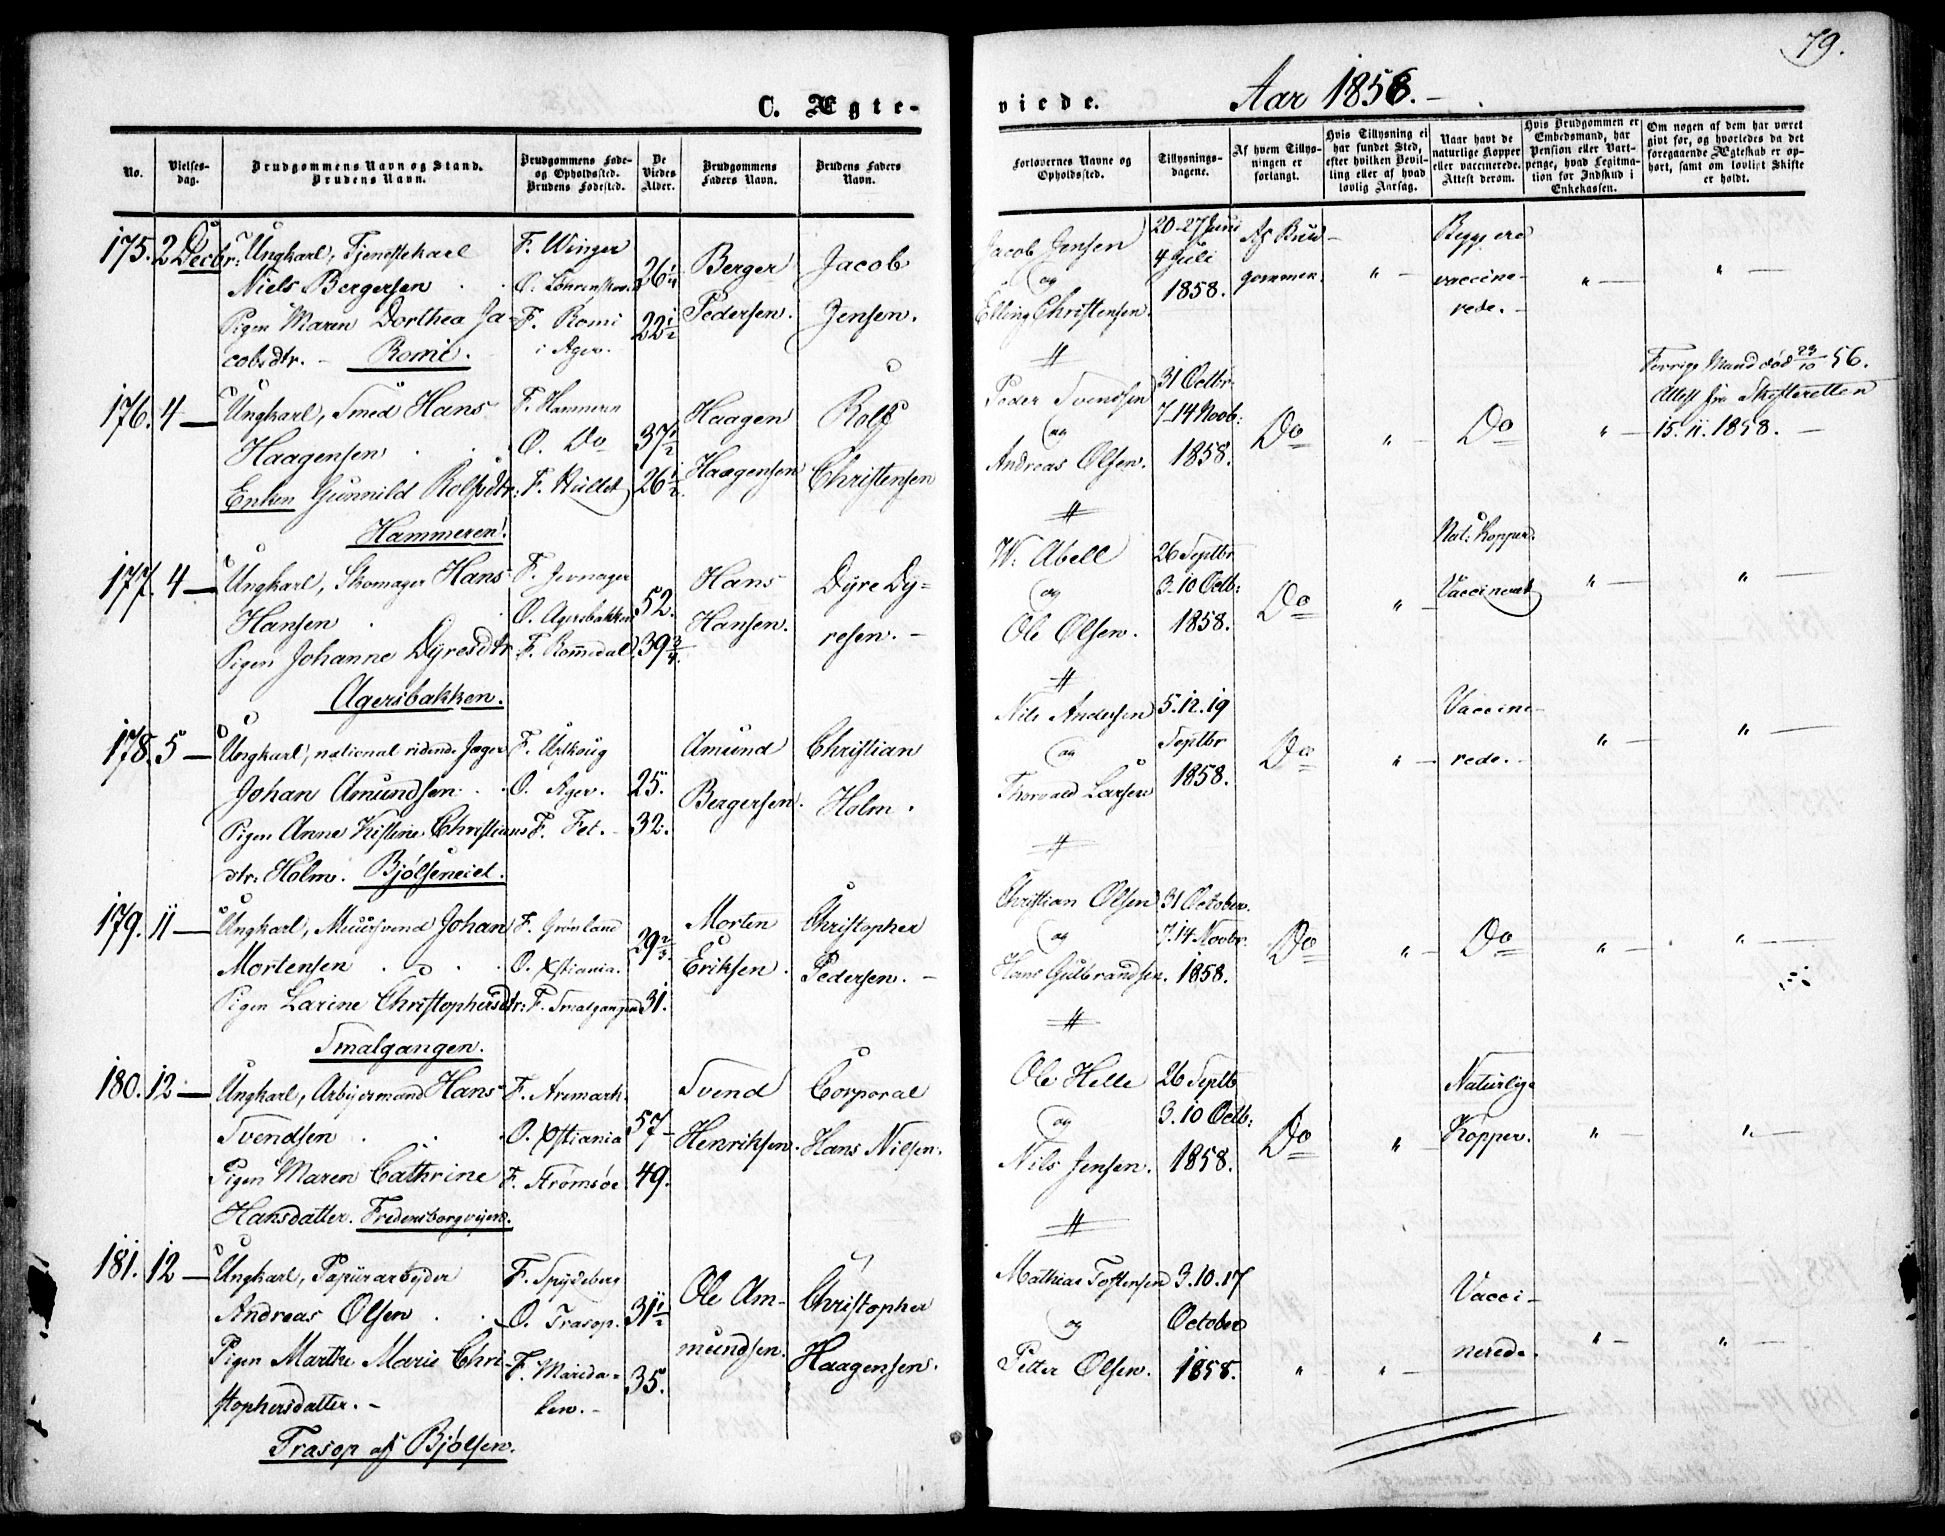 79.
C. Ægte-
viede.
Aar 1858.-
No.
Vielses-
dag.
Brudgommens Navn og Stand.
Brudens Navn.
Brudgommens Føde-
og Opholdssted.
Brudens Fødested.
De
Viedes
Alder.
Brudgommens
Faders Navn.
Brudens Faders
Navn.
Forlovernes Navne og
Opholdssted.
Tillysnings-
dagene.
Af hvem Tillys-
ningen er
forlangt.
Hvis Tillysning ei
har fundet Sted,
efter hvilken Bevil-
ling eller af hvad
lovlig Aarsag.
Naar havt de
naturlige Kopper
eller vaccinerede.
Attest derom.
Hvis Brudgommen er
Embedsmand, har
Pension eller Vart-
penge, hvad Legitima-
tion for Indskud i
Enkekassen.
Om nogen af dem har været
givt før, og hvorledes da det
foregaaende Ægteskab er op-
hørt, samt om lovligt Skifte
er holdt.
175. 2 Decbr: Ungkarl, Tjenestekarl
Niels Bergersen
Pigen Maren Dorthea Ja-
cobsdtr. - Romi.
F. Winger
O. Lørenskov
F. Romi
i Ager.
26 1/4
22 1/2
Berger
Pedersen.
Jacob
Jensen.
Jacob Jensen
og
Elling Christensen.
20-27 Juni
4 Juli
1858.
Af Brud-
gommen.
" -
Begge ere
vaccine-
rede. -
" -
" -
176. 4 - Ungkarl, Smed Hans
Haagensen
Enken Gunnild Rolfsdtr:
Hammeren.
F. Hammeren
O. Do
F. Hullet
37 1/2
26 1/2
Haagen
Haagensen
Rolf
Christensen
#
Peder Svendsen
og
Andreas Olsen.
31 Octbr.
7-14 Novb:
1858.
Do
" -
Do
" -
Forrige Mand død 23/10 56.
Attest fra Skifteretten
15. 11. 1858. -
177. 4 - Ungkarl, Skomager Hans
Hansen
Pigen Johanne Dyresdtr
Agersbakken.
F. Jevnager
O. Agersbakken
F. Rommedal
52.
39 3/4.
Hans
Hansen.
Dyre Dy-
resen. -
#
W. Abell
og
Ole Olsen.
26 Septbr
3-10 Octb:
1858.
Do
" -
Nat: Kopper.
Vaccineret
" -
" -
178. 5 - Ungkarl, national ridende Jæger
Johan Amundsen
Pigen Anne Kistine Christians
dtr: Holm. Bjølseneiet.
F. Urskoug
O. Ager.
F. Fet. -
25.
32.
Amund
Bergersen.
Christian
Holm.
#
Nils Andersen
og
Thorvald Larsen
5. 12. 19
Septbr
1858.
Do
" -
Vaccine-
rede. -
" -
" -
179. 11 - Ungkarl, Muursvend Johan
Mortensen
Pigen Larine Christophersdtr:
Smalgangen.
F. Grønland
O. Xstiania.
F. Smalgangen
29 2/3
31.
Morten
Eriksen.
Christopher
Pedersen. -
#
Christian Olsen
og
Hans Gulbrandsen.
31 October.
7. 14 Novbr.
1858.
Do
" -
Do
" -
" -
180. 12 - Ungkarl, Arbejdsmand Hans
Svendsen
Pigen Maren Cathrine
Hansdatter. Fredensborgveien.
F. Aremark.
O. Xstiania
F. Strømsøe
57 -
49.
Svend
Henriksen.
Corporal
Hans Nilsen.
#
Ole Helle
og
Nils Jensen.
26 Septb
3. 10 Octb:
1858.
Do
" -
Naturlige
Kopper.
" -
" -
181. 12 - Ungkarl, Papirarbejder
Andreas Olsen
Pigen Marthe Marie Chri-
stophersdatter. -
Trasop af Bjølsen.
F. Spydeberg
O. Trasop.
F. Marida-
len. -
31 1/2
35.
Ole Am-
mundsen.
Christopher
Haagensen.
#
Mathias Tostensen
og
Petter Olsen.
3. 10. 17
October
1858.
"
" -
Vacci-
nerede.
" -
" -